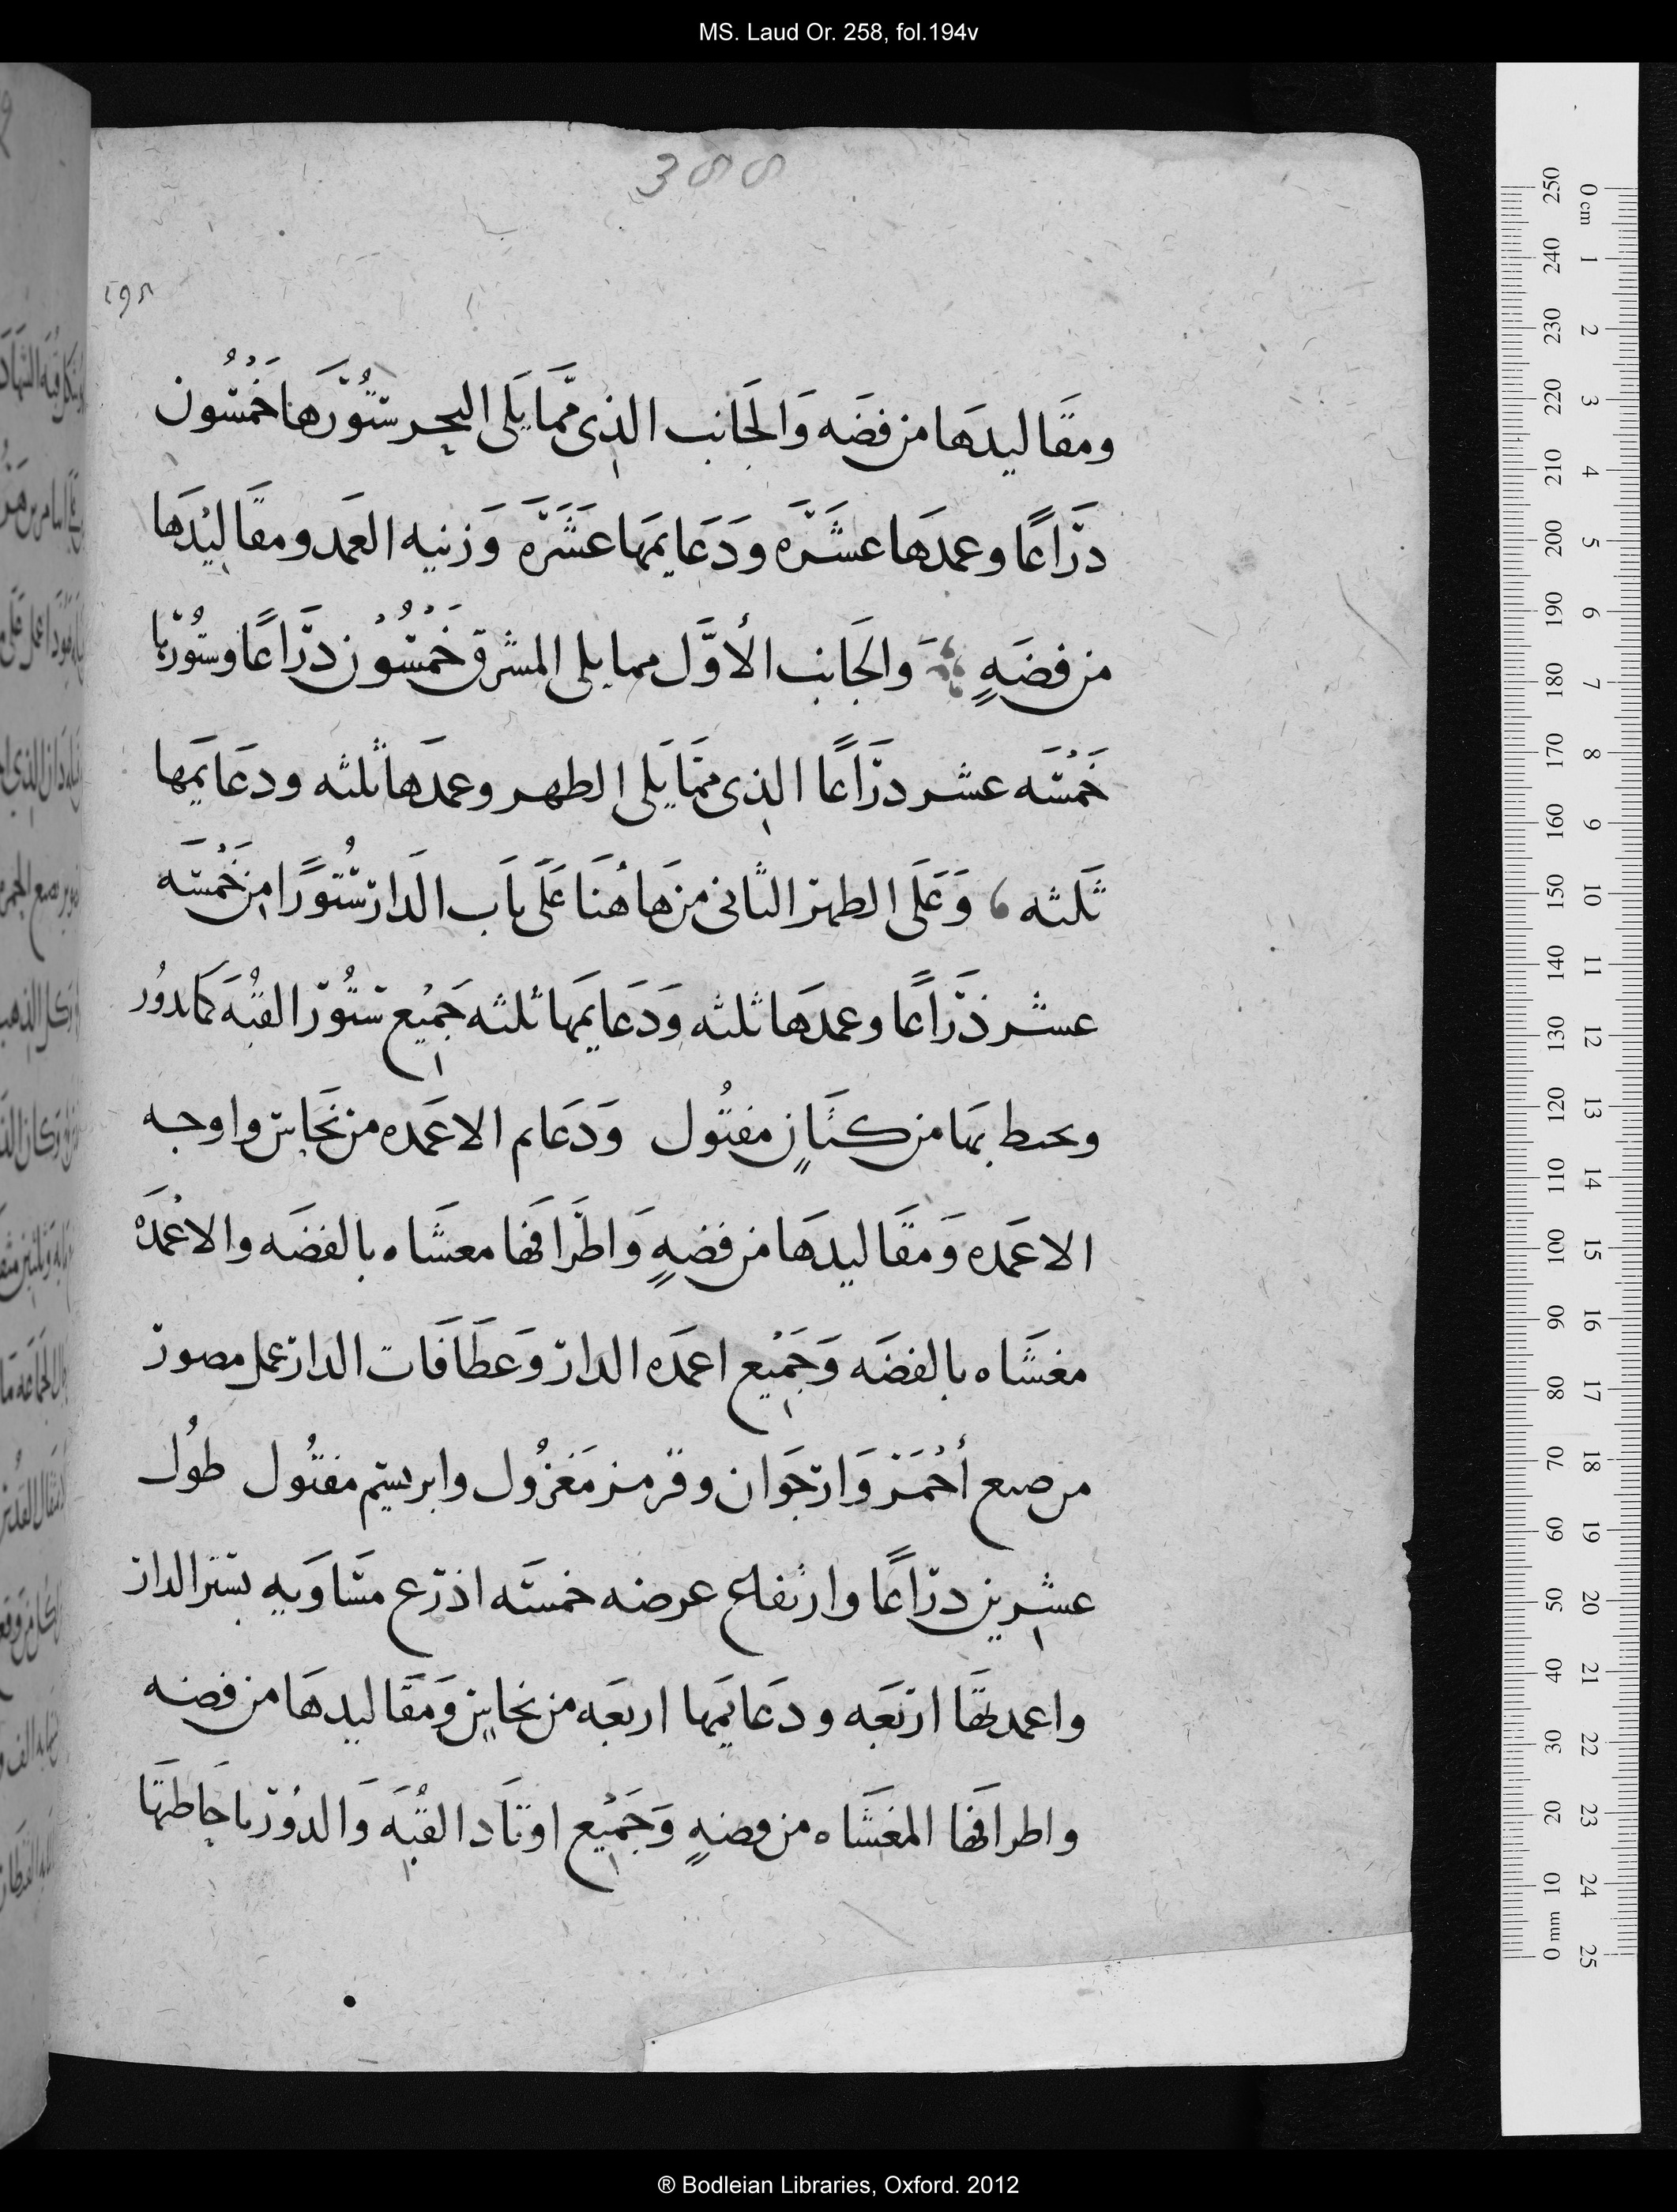 MS. Laud Or. 258, fol.194v
ومقَاليدهَا من فضَه وَالجَانب الذِى مَّمَا يَلى البحر ستُوّرهَا خَمْسُون
درَاعًا وعمدهَا عشَرَه ودَعَايمهَا عَشَرَه وَزنيه العَمد ومقَاليْدَهَا
من فضَهٍ وَالجَانب الأوَّل مما يلى المشرق خَمْسُون درَاعًا وستُورّها
خَمْسَه عشر درَاعًا الذِى ممَا يَلى الطهر وعمدَها ثلثه ودعَايمَها
ثَلثه وَعَلَى الطهر الثَانى من هَا هُنَا عَلَى بَاب الدَار سُتُورًا مِن خَمْسَه
عشر ذرَاعًا وعمدهَا ثلثه وَدَعَايمَها ثلثه جَمِيْع ستُوّر القبُه كمَا يدوُر
وىحىط بهَا من كتَانٍ مفتُول وَدَعَايم الاعَمده من نَحَاس واوجه
الاعَمده وَمقَاليدهَا من فضهٍ وَاطرَافهَا معشَاه بالفضَه والاعْمدَه
مغشَاه بالفضَه وَجَمِيْع اعمدَه الدار وَعطَافَات الدار عمل مصور
من صبع أحْمَر وَارجَوان وقرمز مَغزُول وابريسيم مفتُول طوُل
عشرِين درَاعًا وارتفاع عرضه خمسَه اذرع مسَاوَيه بستر الدار
واعمدتهَا اربعَه ودعَايمهَا اربعَه من نحاسٍ وَمقَاليدهَا من فضه
واطرافهَا المغشَاه من فضهٍ وَجَمِيْع اوتَاد القبُه وَالدوُر باحَاطتهَا
250 240 230 220 210 200 190 180 170 160 150 140 130 120 110 100 90 80 70 60 50 40 30 20 10 0 mm
0 cm 1 2 3 4 5 6 7 8 9 10 11 12 13 14 15 16 17 18 19 20 21 22 23 24 25
® Bodleian Libraries, Oxford. 2012